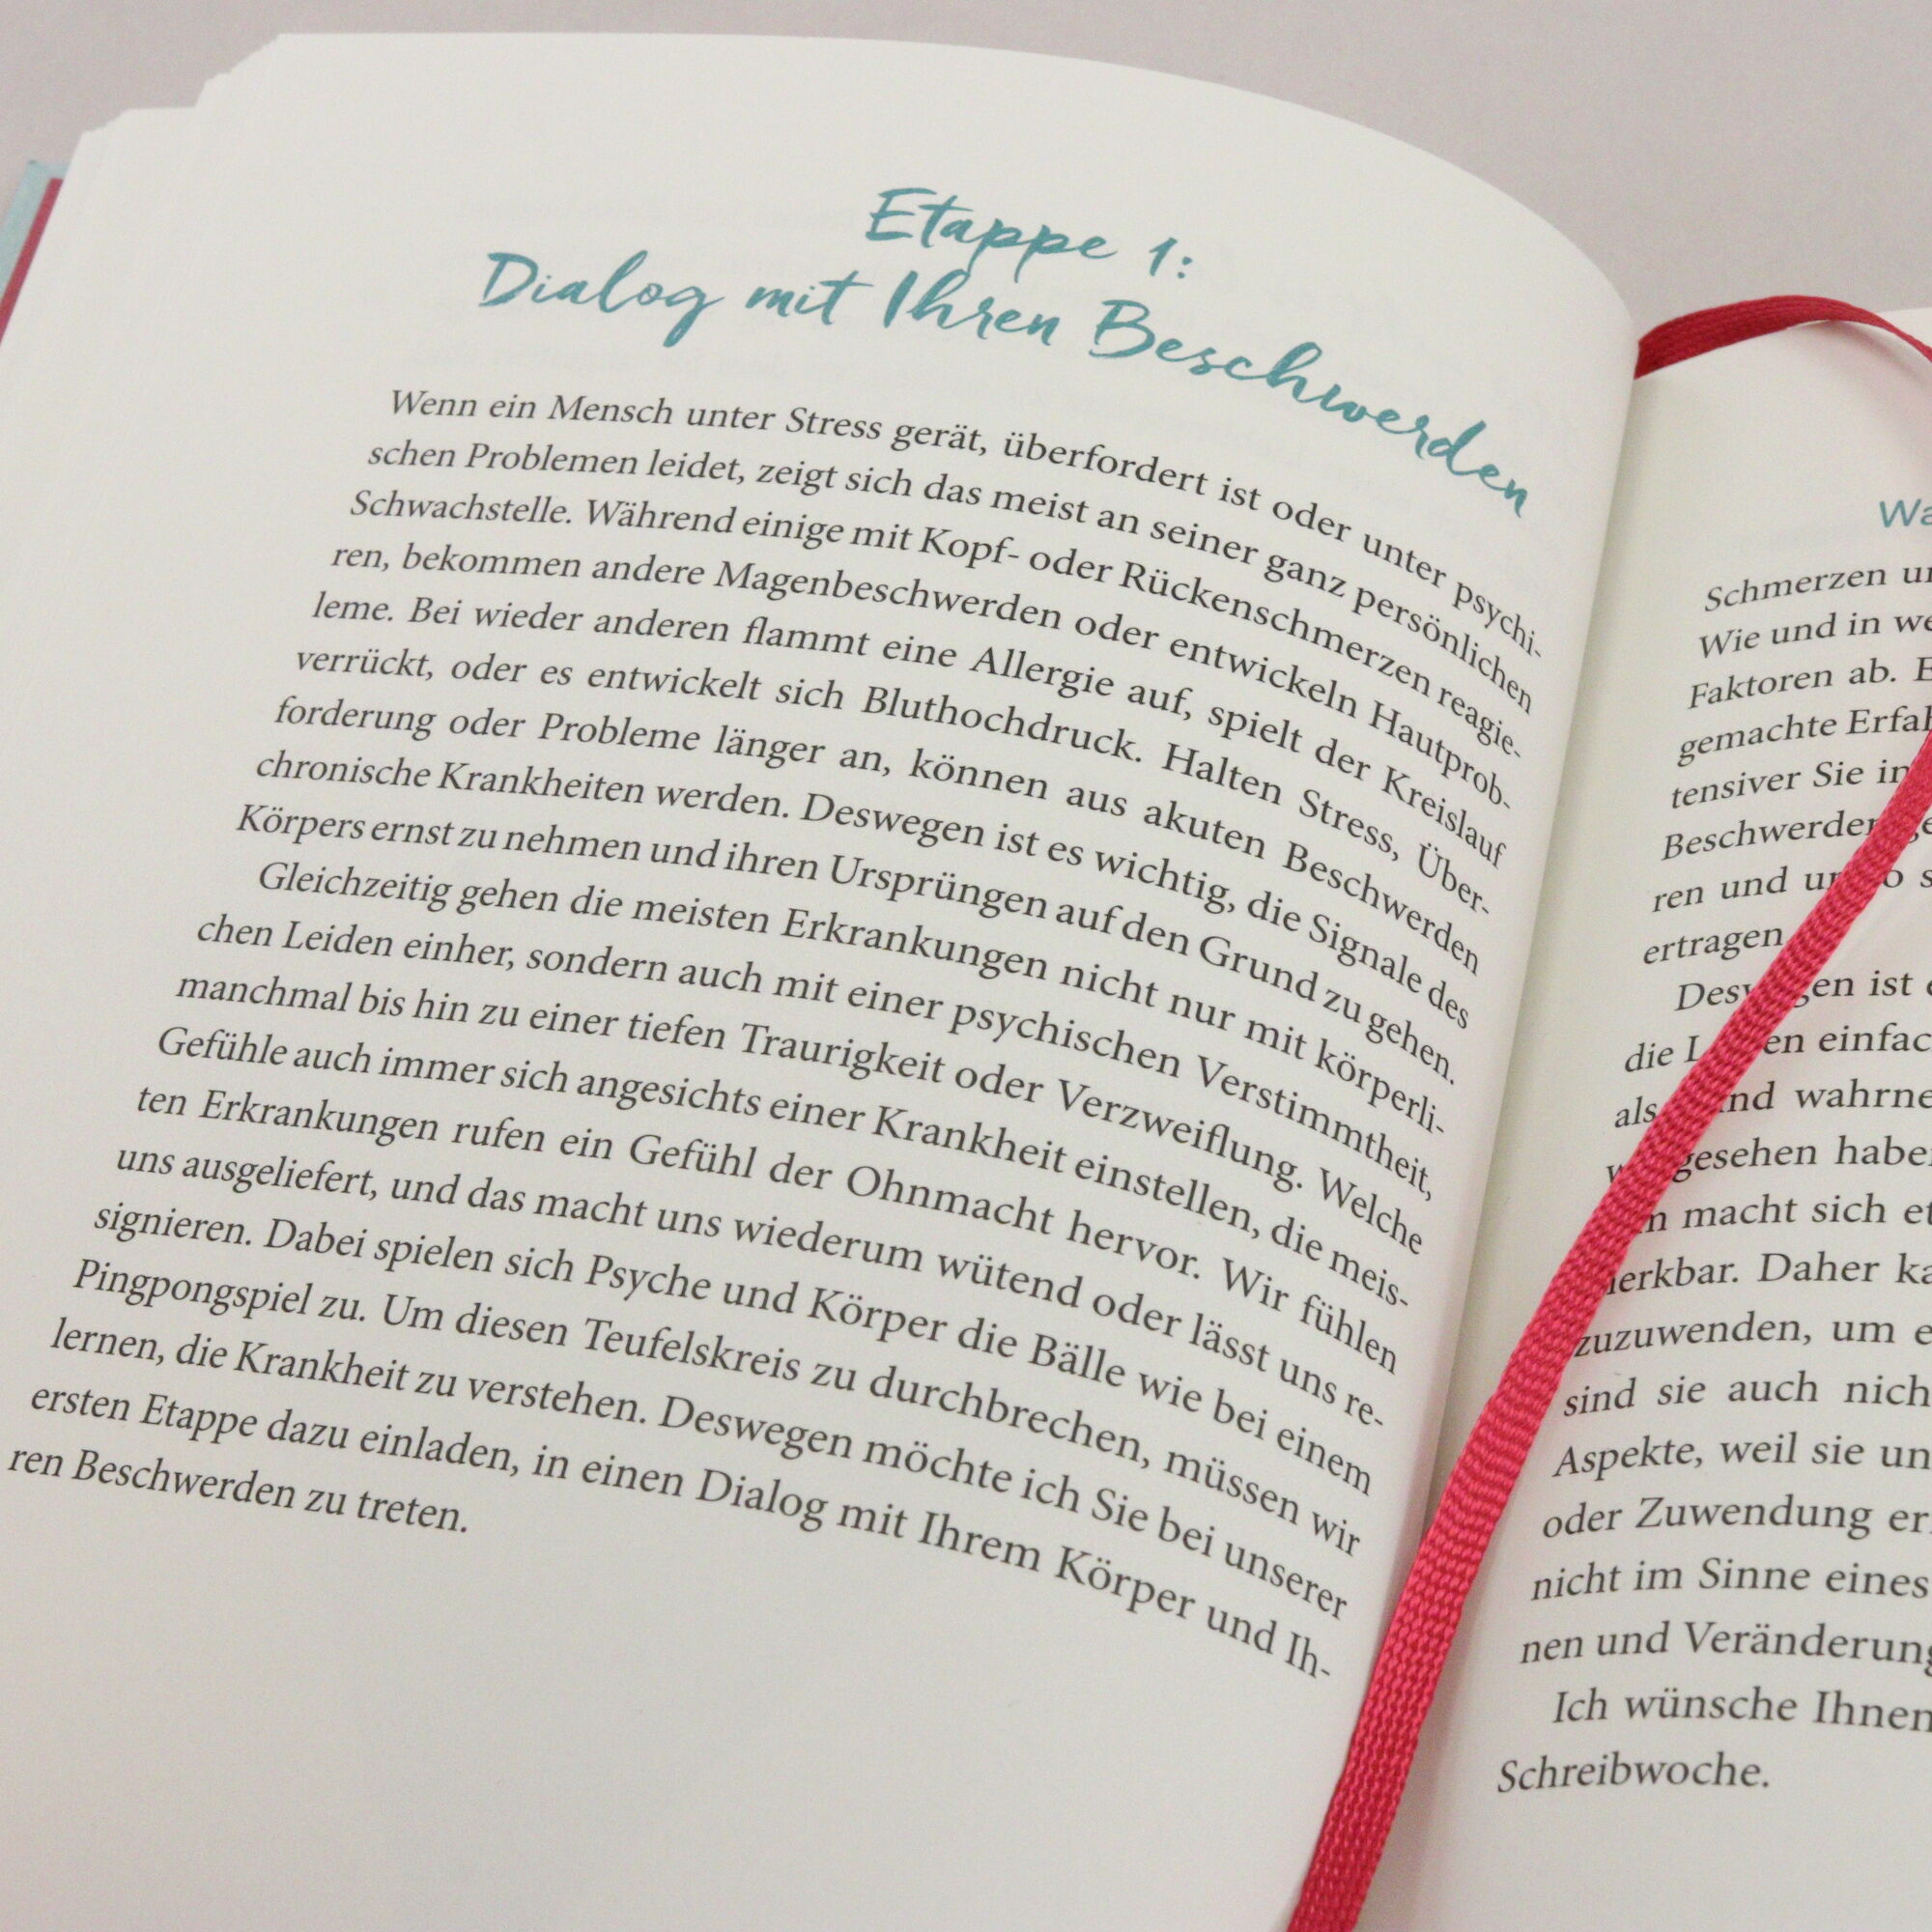 Etappe 1:
Dialog mit Ihren Beschwerden
Wenn ein Mensch unter Stress gerät, überfordert ist oder unter psychi-
schen Problemen leidet, zeigt sich das meist an seiner ganz persönlichen
Schwachstelle. Während einige mit Kopf- oder Rückenschmerzen reagie-
ren, bekommen andere Magenbeschwerden oder entwickeln Hautprob-
leme. Bei wieder anderen flammt eine Allergie auf, spielt der Kreislauf
verrückt, oder es entwickelt sich Bluthochdruck. Halten Stress, Über-
forderung oder Probleme länger an, können aus akuten Beschwerden
chronische Krankheiten werden. Deswegen ist es wichtig, die Signale des
Körpers ernst zu nehmen und ihren Ursprüngen auf den Grund zu gehen.
Gleichzeitig gehen die meisten Erkrankungen nicht nur mit körperli-
chen Leiden einher, sondern auch mit einer psychischen Verstimmtheit,
manchmal bis hin zu einer tiefen Traurigkeit oder Verzweiflung. Welche
Gefühle auch immer sich angesichts einer Krankheit einstellen, die meis-
ten Erkrankungen rufen ein Gefühl der Ohnmacht hervor. Wir fühlen
uns ausgeliefert, und das macht uns wiederum wütend oder lässt uns re-
signieren. Dabei spielen sich Psyche und Körper die Bälle wie bei einem
Pingpongspiel zu. Um diesen Teufelskreis zu durchbrechen, müssen wir
lernen, die Krankheit zu verstehen. Deswegen möchte ich Sie bei unserer
ersten Etappe dazu einladen, in einen Dialog mit Ihrem Körper und Ih-
ren Beschwerden zu treten.
Schmerzen
Wie und in
Faktoren ab.
gemachte
tensiver Sie
ren und
ertragen
ist
die
einfac
als
wahrne
gesehen
macht sich
Daher
zuzuwenden, um
sind sie auch
Aspekte, weil sie
oder Zuwendung
nicht im Sinne eines
nen und
Ich wünsche Ihnen
Schreibwoche.